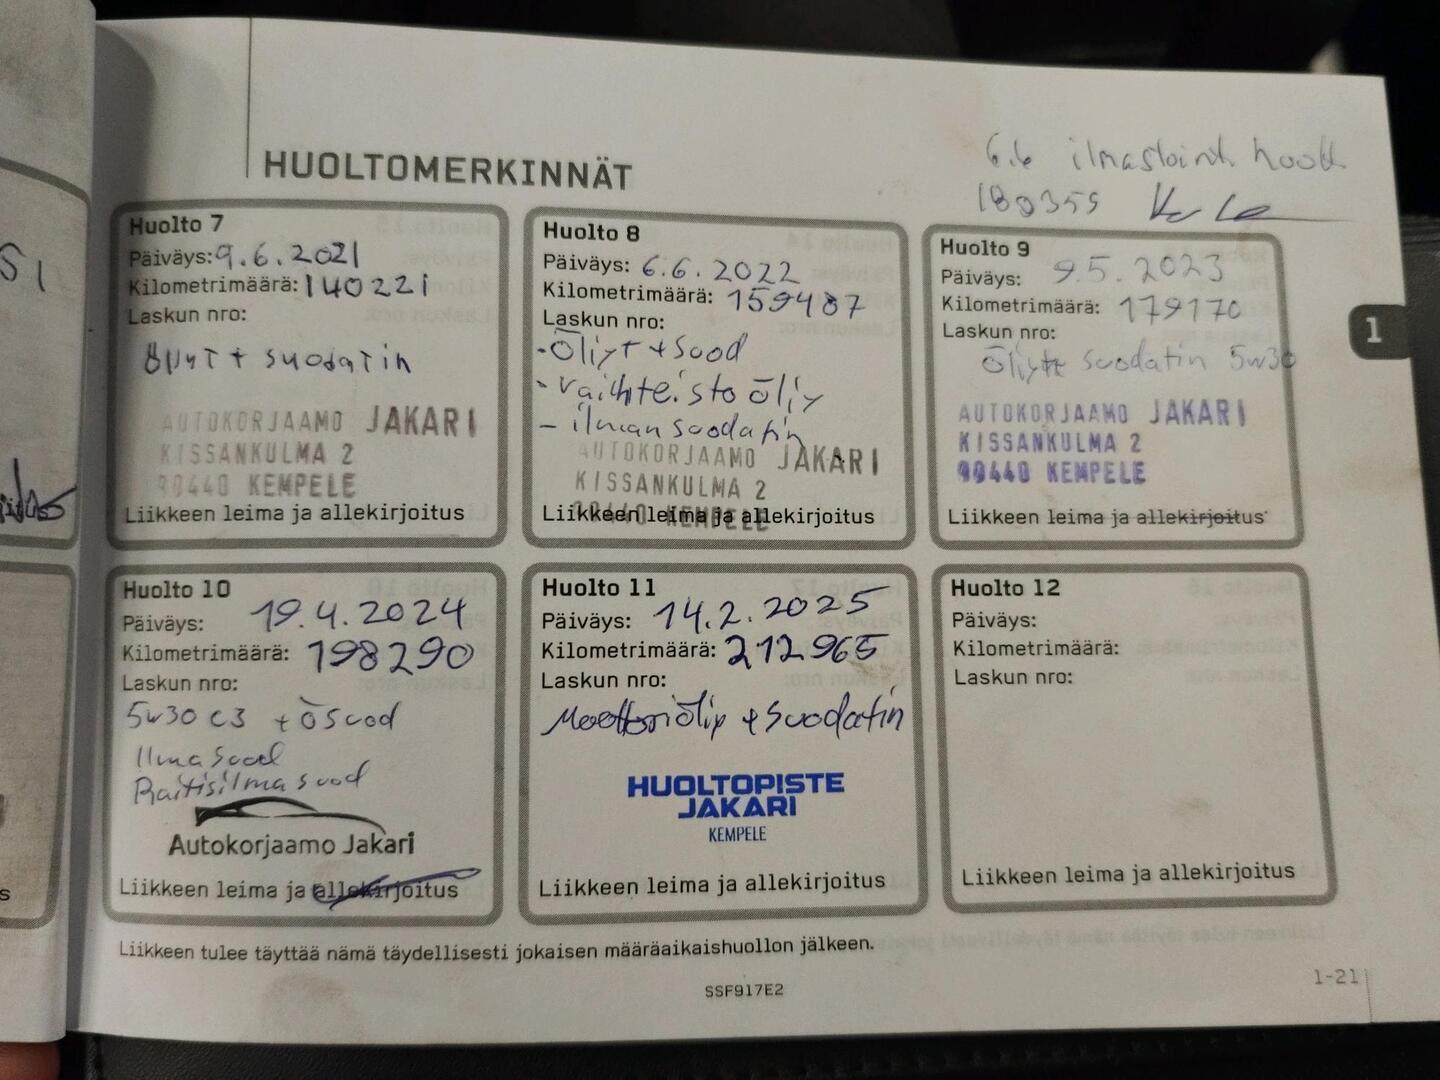 HUOLTOMERKINNÄT
6.6 ilmastoinh huolt
180355
Huolto 7
Päiväys: 9.6.2021
Kilometrimäärä: 140221
Laskun nro:
Öliyt + suodatin
AUTOKORJAAMO JAKARI
KISSANKULMA 2
90440 KEMPELE
Liikkeen leima ja allekirjoitus
Huolto 8
Päiväys: 6.6.2022
Kilometrimäärä: 159487
Laskun nro:
-Öliyt + suod
- vaihteisto öliy
- ilman suodatin
AUTOKORJAAMO JAKARI
KISSANKULMA 2
90440 KEMPELE
Liikkeen leima ja allekirjoitus
Huolto 9
Päiväys: 9.5.2023
Kilometrimäärä: 179170
Laskun nro:
Öliyt suodatin 5w30
AUTOKORJAAMO JAKARI
KISSANKULMA 2
90440 KEMPELE
Liikkeen leima ja allekirjoitus
1
Huolto 10
Päiväys: 19.4.2024
Kilometrimäärä: 198290
Laskun nro:
5w30 c3 + ö suod
Ilma suod
Raitisilma suod
Autokorjaamo Jakari
Liikkeen leima ja allekirjoitus
Huolto 11
Päiväys: 14.2.2025
Kilometrimäärä: 212965
Laskun nro:
Moottoriöliy + suodatin
HUOLTOPISTE
JAKARI
KEMPELE
Liikkeen leima ja allekirjoitus
Huolto 12
Päiväys:
Kilometrimäärä:
Laskun nro:
Liikkeen leima ja allekirjoitus
Liikkeen tulee täyttää nämä täydellisesti jokaisen määräaikaishuollon jälkeen.
SSF917E2
1-21